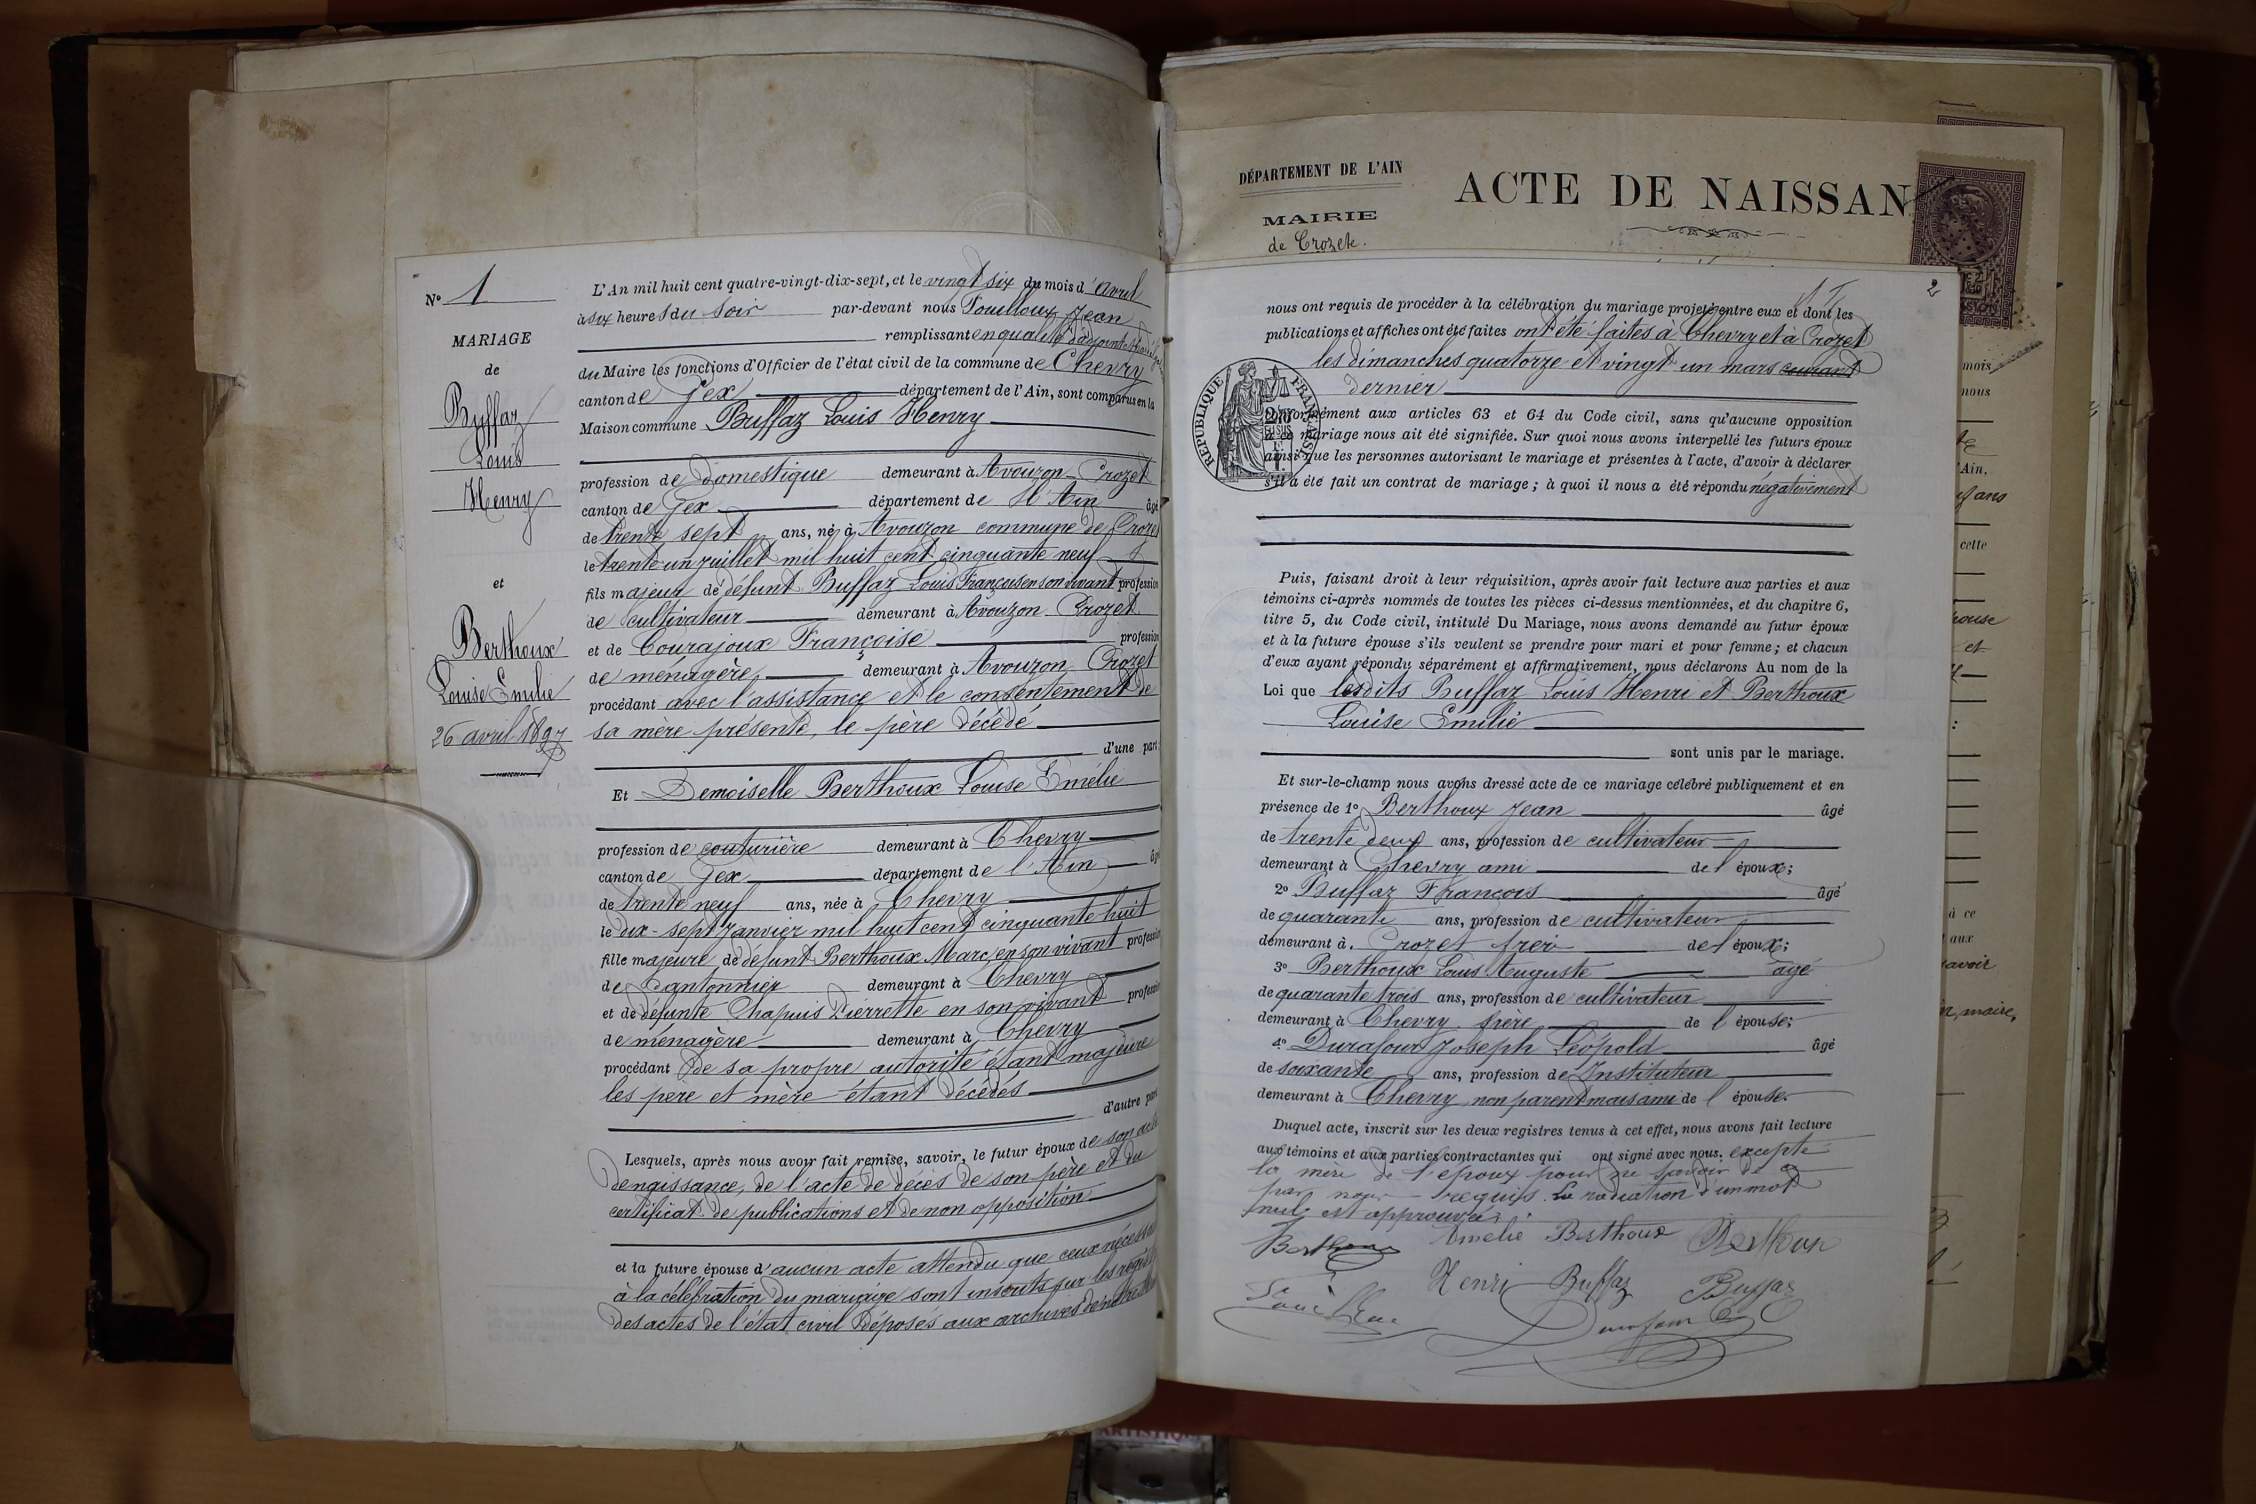 N° 1
MARIAGE
de
Buffaz
Louis
Henry
et
Berthoux
Louise Emilie
26 avril 1897
L'An mil huit cent quatre-vingt-dix-sept, et le vingt six du mois d'avril
à six heures du soir par-devant nous Fouilloux Jean
remplissant en qualité d'adjoint
du Maire les fonctions d'Officier de l'état civil de la commune de Chevry
canton de Gex département de l'Ain, sont comparus en la
Maison commune Buffaz Louis Henry
profession de domestique demeurant à Avouzon Crozet
canton de Gex département de l'Ain âgé
de trente sept ans, né à Avouzon commune de Crozet
le trente-un juillet mil huit cent cinquante neuf
fils majeur de défunt Buffaz Louis François en son vivant profession
de cultivateur demeurant à Avouzon Crozet
et de Courajoux Françoise profession
de ménagère demeurant à Avouzon Crozet
procédant avec l'assistance et le consentement de
sa mère présente, le père décédé
d'une part
Et Demoiselle Berthoux Louise Emélie
profession de couturière demeurant à Chevry
canton de Gex département de l'Ain âgé
de trente neuf ans, née à Chevry
le dix-sept janvier mil huit cent cinquante huit
fille majeure de défunt Berthoux Marc, en son vivant profession
de cantonnier demeurant à Chevry
et de défunte Chapuis Pierrette en son vivant profession
de ménagère demeurant à Chevry
procédant de sa propre autorité étant majeure
les père et mère étant décédés
d'autre part
Lesquels, après nous avoir fait remise, savoir, le futur époux de son acte
de naissance, de l'acte de décès de son père et du
certificat de publications et de non opposition
et la future épouse d'aucun acte attendu que ceux nécess
à la célébration du mariage sont inscrits sur les regist
des actes de l'état civil déposés aux archives de
DÉPARTEMENT DE L'AIN
MAIRIE
de Crozet.
ACTE DE NAISSAN
2
nous ont requis de procéder à la célébration du mariage projeté entre eux et dont les
publications et affiches ont été faites ont été faites à Chevry et à Crozet
les dimanches quatorze et vingt un mars courant
dernier
RÉPUBLIQUE FRANÇAISE
Conformément aux articles 63 et 64 du Code civil, sans qu'aucune opposition
à ce mariage nous ait été signifiée. Sur quoi nous avons interpellé les futurs époux
ainsi que les personnes autorisant le mariage et présentes à l'acte, d'avoir à déclarer
s'il a été fait un contrat de mariage; à quoi il nous a été répondu négativement
Puis, faisant droit à leur réquisition, après avoir fait lecture aux parties et aux
témoins ci-après nommés de toutes les pièces ci-dessus mentionnées, et du chapitre 6,
titre 5, du Code civil, intitulé Du Mariage, nous avons demandé au futur époux
et à la future épouse s'ils veulent se prendre pour mari et pour femme; et chacun
d'eux ayant répondu séparément et affirmativement, nous déclarons Au nom de la
Loi que lesdits Buffaz Louis Henri et Berthoux
Louise Emilie
sont unis par le mariage.
Et sur-le-champ nous avons dressé acte de ce mariage célébré publiquement et en
présence de 1° Berthoux Jean âgé
de trente deux ans, profession de cultivateur
demeurant à Chevry ami de l'époux;
2° Buffaz François âgé
de quarante ans, profession de cultivateur
demeurant à Crozet frère de l'époux;
3° Berthoux Louis Auguste âgé
de quarante trois ans, profession de cultivateur
demeurant à Chevry frère de l'épouse;
4° Durafour Joseph Léopold âgé
de soixante ans, profession de Instituteur
demeurant à Chevry non parent mais ami de l'épouse.
Duquel acte, inscrit sur les deux registres tenus à cet effet, nous avons fait lecture
aux témoins et aux parties contractantes qui ont signé avec nous. excepté
la mère de l'époux pour ne savoir de ce
par nous requis. La radiation d'un mot
nul est approuvée.
Berthoux Amelie Berthoux Berthoux
Henri Buffaz Buffaz
Fouilloux Durafour
mois
nous
'Ain,
ans
cette
et
à ce
aux
savoir
maire,